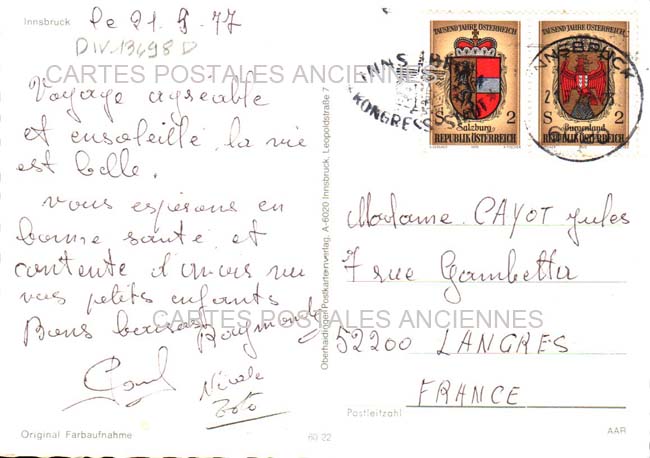 Innsbruck
le 21.9.77
DIV-13698 D
CARTES POSTALES ANCIENNES
Voyage agréable
et ensoleillé, la vie
est belle.
vous espérons en
bonne santé et
contente d'avoir vu
vos petits enfants
Bons baisers Raymonde
Nicole
Toto
Original Farbaufnahme
60 22
Oberhaidinger Postkartenverlag, A-6020 Innsbruck, Leopoldstraße 7
TAUSEND JAHRE ÖSTERREICH
S 2
Salzburg
REPUBLIK ÖSTERREICH
TAUSEND JAHRE ÖSTERREICH
S 2
Burgenland
REPUBLIK ÖSTERREICH
INNSBRUCK
KONGRESS
INNSBRUCK
Madame CAYOT Jules
7 rue Gambetta
CARTES POSTALES ANCIENNES
52200 LANGRES
FRANCE
Postleitzahl
AAR